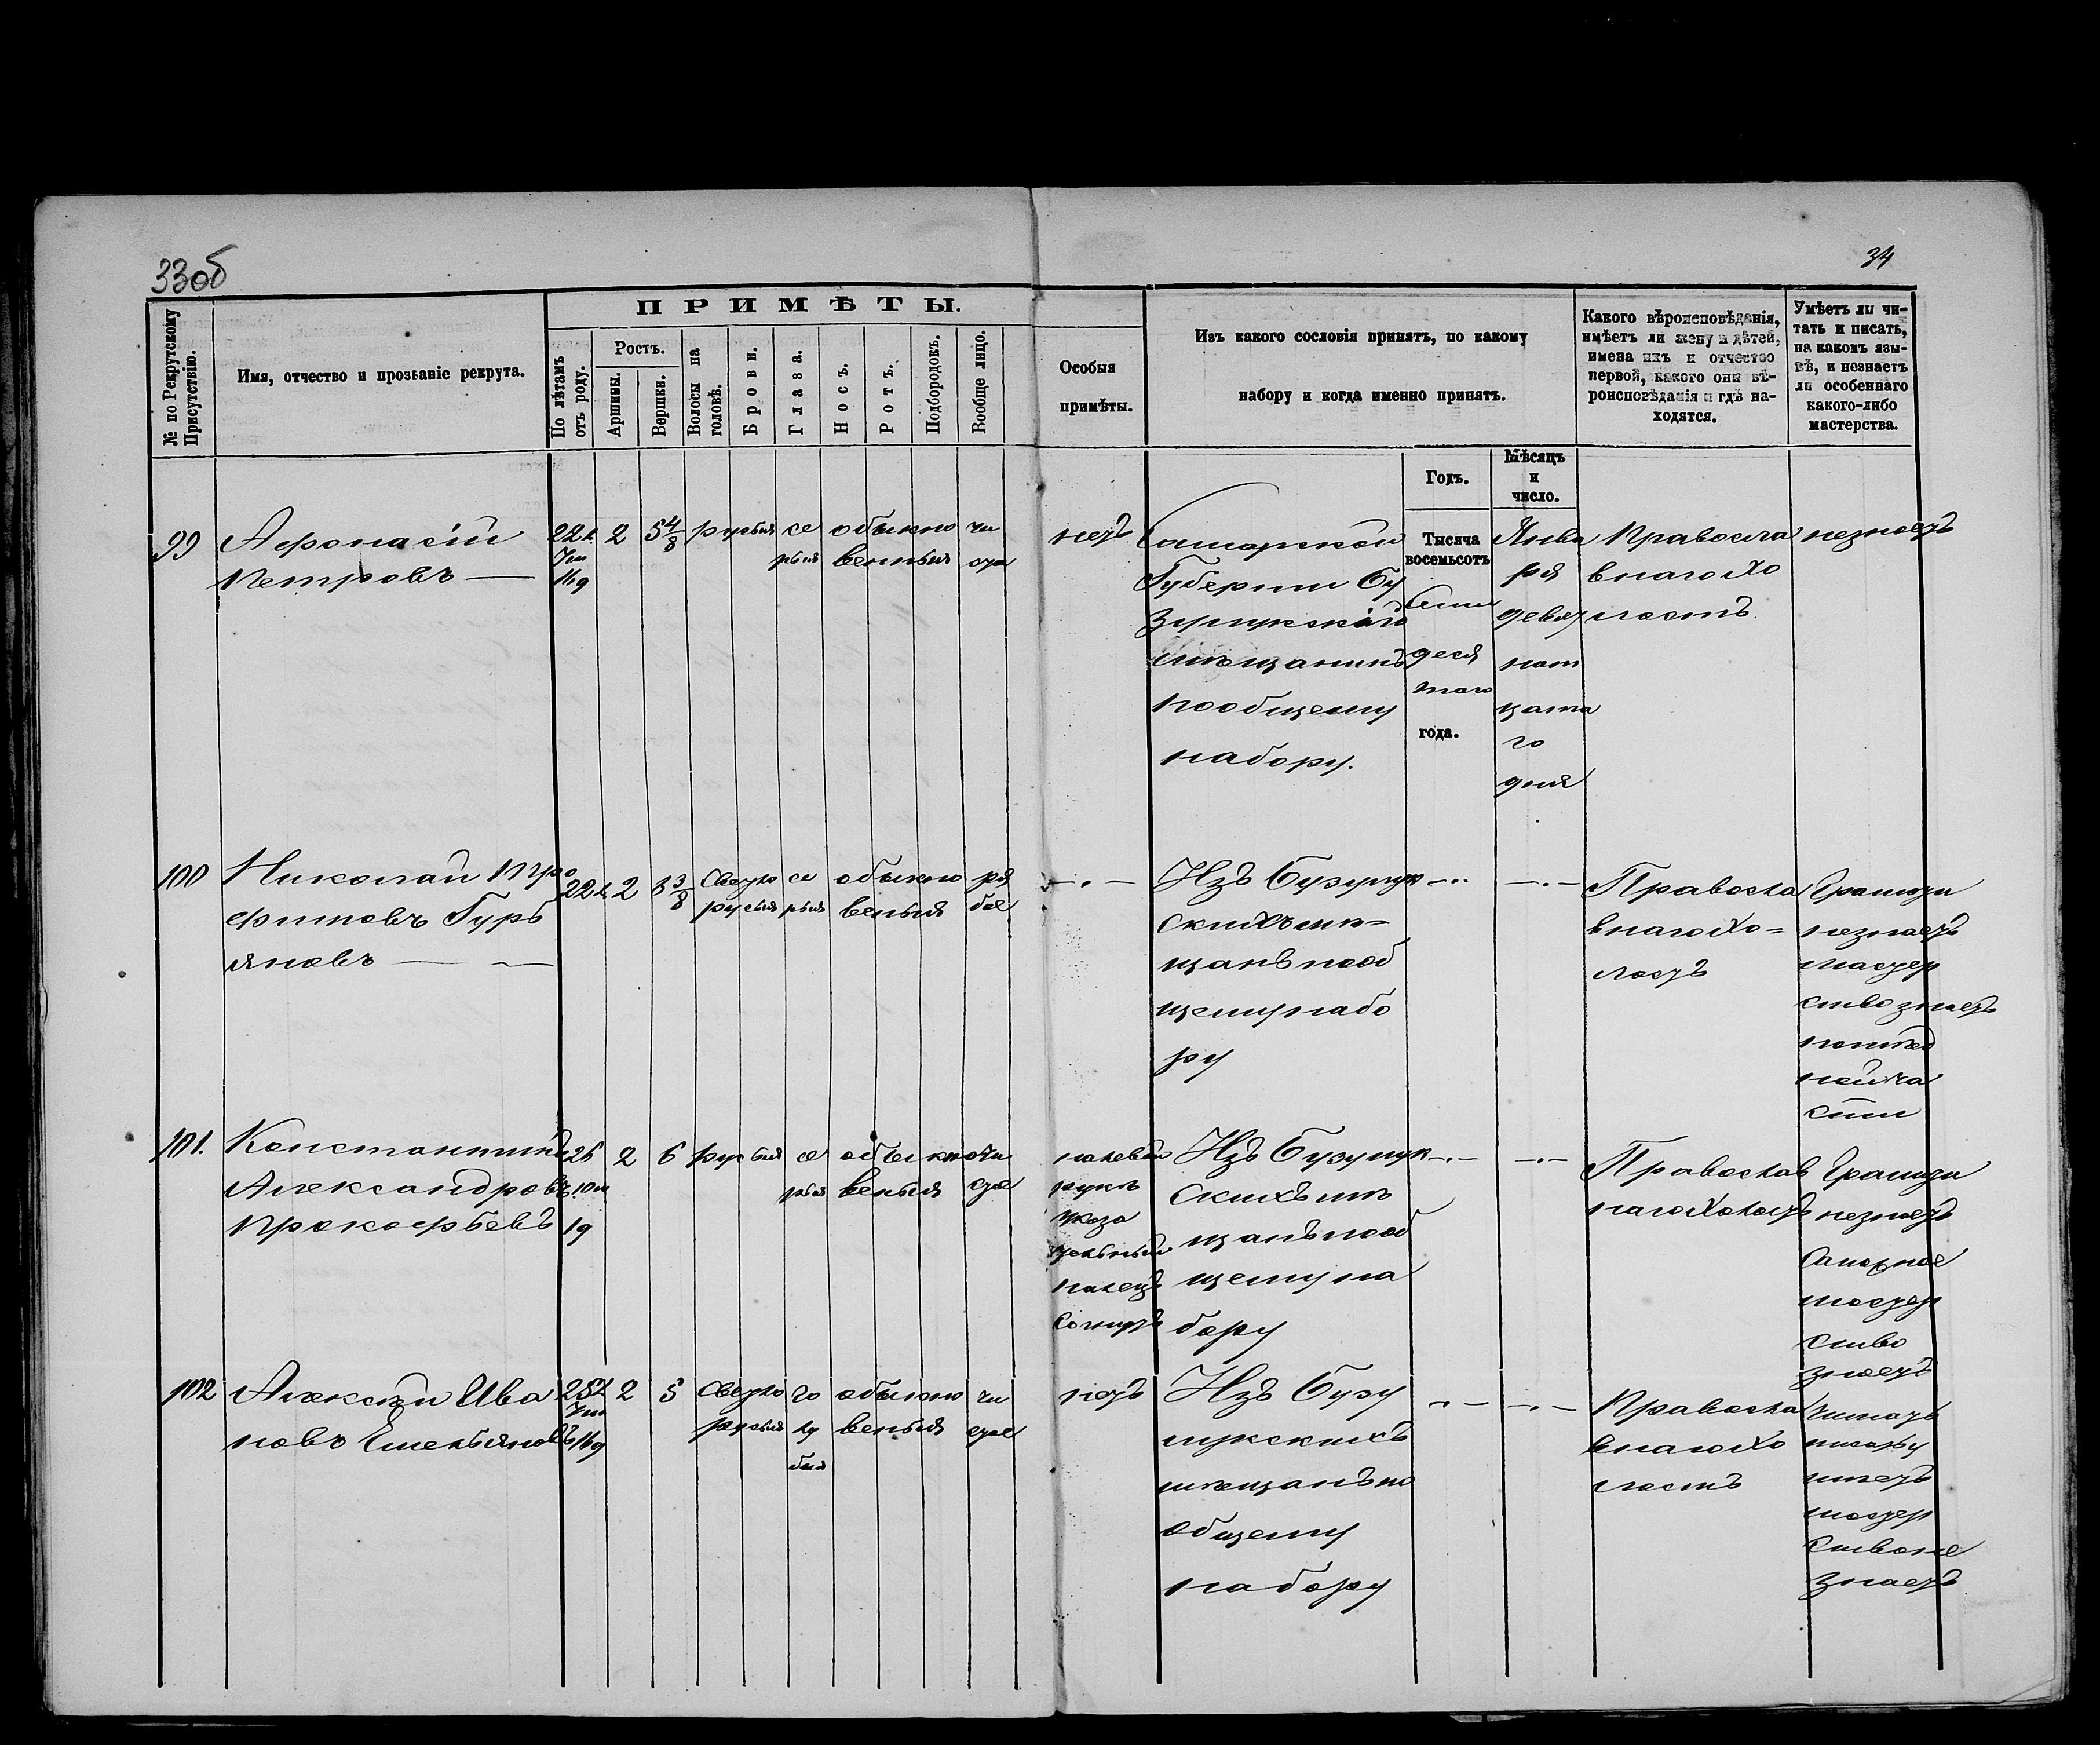 33об
34
№ по Рекрутскому Присутствію.
Имя, отчество и прозьваніе рекрута.
ПРИМѢТЫ.
По лѣтамъ отъ роду.
Ростъ.
Аршины.
Вершки.
Волосы на головѣ.
Брови.
Глаза.
Носъ.
Ротъ.
Подбородокъ.
Вообще лицо.
Особыя
примѣты.
Изъ какого сословія принятъ, по какому
набору и когда именно принятъ.
Какого вѣроисповѣданія,
имѣетъ ли жену и дѣтей,
имена ихъ и отчество
первой, какого они вѣ-
роисповѣданія и гдѣ на-
ходятся.
Умѣетъ ли чи-
тать и писать,
на какомъ язы-
кѣ, и незнаетъ
ли особеннаго
какого-либо
мастерства.
Годъ.
Мѣсяцъ
и
число.
99
Афонасій
Петровъ
22
2
5 4/8
русыя
се
рыя
обыкно
венныя
чи
стое
нетъ
Самарской
Губерніи Бу
зулукскій
мѣщанинъ
пообщему
набору.
Тысяча
восемьсотъ
семи
деся
таго
года.
Янва
ря
девят
нат
цата
го
дня
Правосла
внаго Хо
лостъ
незнаетъ
100
Николай
фимовъ Гурь
яновъ
22
2
3/8
Светло
русыя
се
рыя
обыкно
веныя
ря
бое
Изъ Бузулук
скихъ мѣ=
щанъ пооб
щему набо
ру
Правосла
внаго Хо=
лостъ
Грамоти
незнаетъ
мастер
ство знаетъ
ча
сти
101.
Константинъ
Александровъ
Прокофьевъ
26
10м
19
2
6
русыя
се
рыя
обыкно
веныя
чи
стое
налевой
рукѣ
указа
тельный
палецъ
согнутъ
Изъ Бузулук
скихъ мѣ
щанъ пооб
щему на
бору
Православ
наго Холостъ
Грамоти
незнаетъ
Сапожное
мастер
ство
знаетъ
102
Алексѣй Ива
новъ Емельяновъ
25
2
5
Светло
русыя
го
лу
быя
обыкно
веныя
чи
стое
нетъ
Изъ Бузу
лукскихъ
мѣщанъ по
общему
набору
Правосла
внаго Хо
лостъ
Читать
писать у
меетъ
мастер
ство не
знаетъ